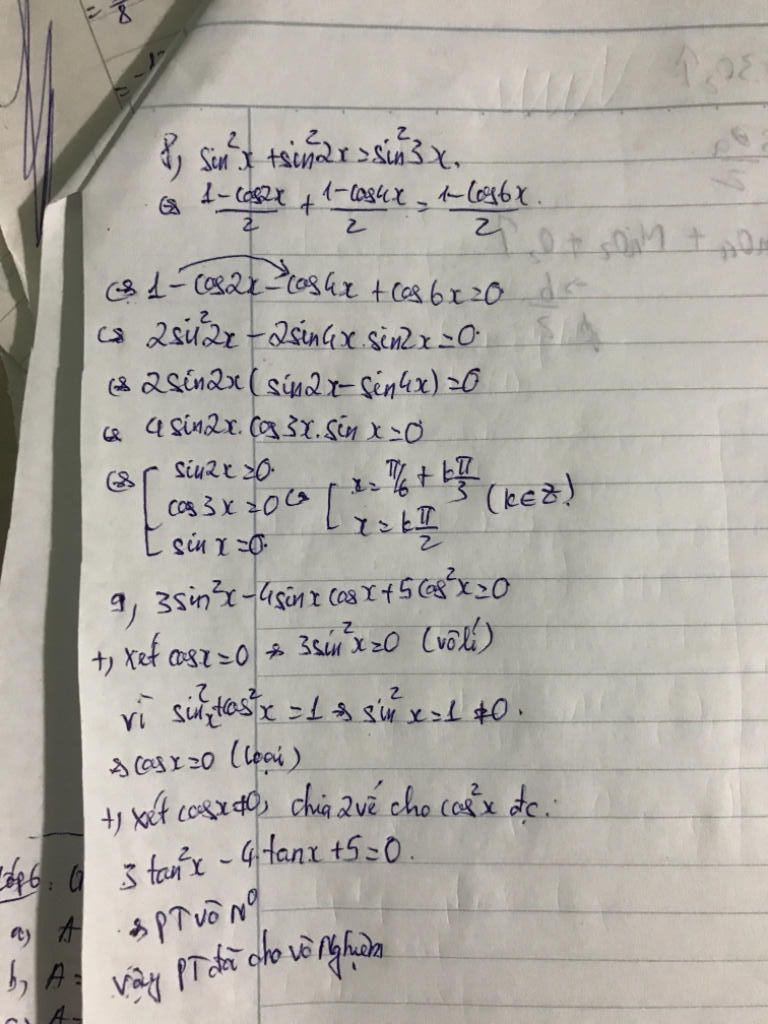 8, sin²x + sin²2x = sin²3x.
⇔ (1-cos2x)/2 + (1-cos4x)/2 = (1-cos6x)/2.
⇔ 1 - cos2x - cos4x + cos6x = 0
⇔ 2sin²2x - 2sin4x.sin2x = 0.
⇔ 2sin2x (sin2x - sin4x) = 0
⇔ 4sin2x.cos3x.sinx = 0
⇔ [ sin2x = 0.
cos3x = 0 ⇔ [ x = π/6 + kπ/3
sinx = 0. x = kπ/2 (k∈Z)
9, 3sin²x - 4sinxcosx + 5cos²x = 0
+, xét cosx = 0 ⇒ 3sin²x = 0 (vô lí)
vì sin²x + cos²x = 1 ⇒ sin²x = 1 ≠ 0.
⇒ cosx = 0 (loại)
+, xét cosx ≠ 0, chia 2 vế cho cos²x đc:
3tan²x - 4.tanx + 5 = 0.
⇒ PT vô N⁰
vậy PT đã cho vô nghiệm
a) A
b, A =